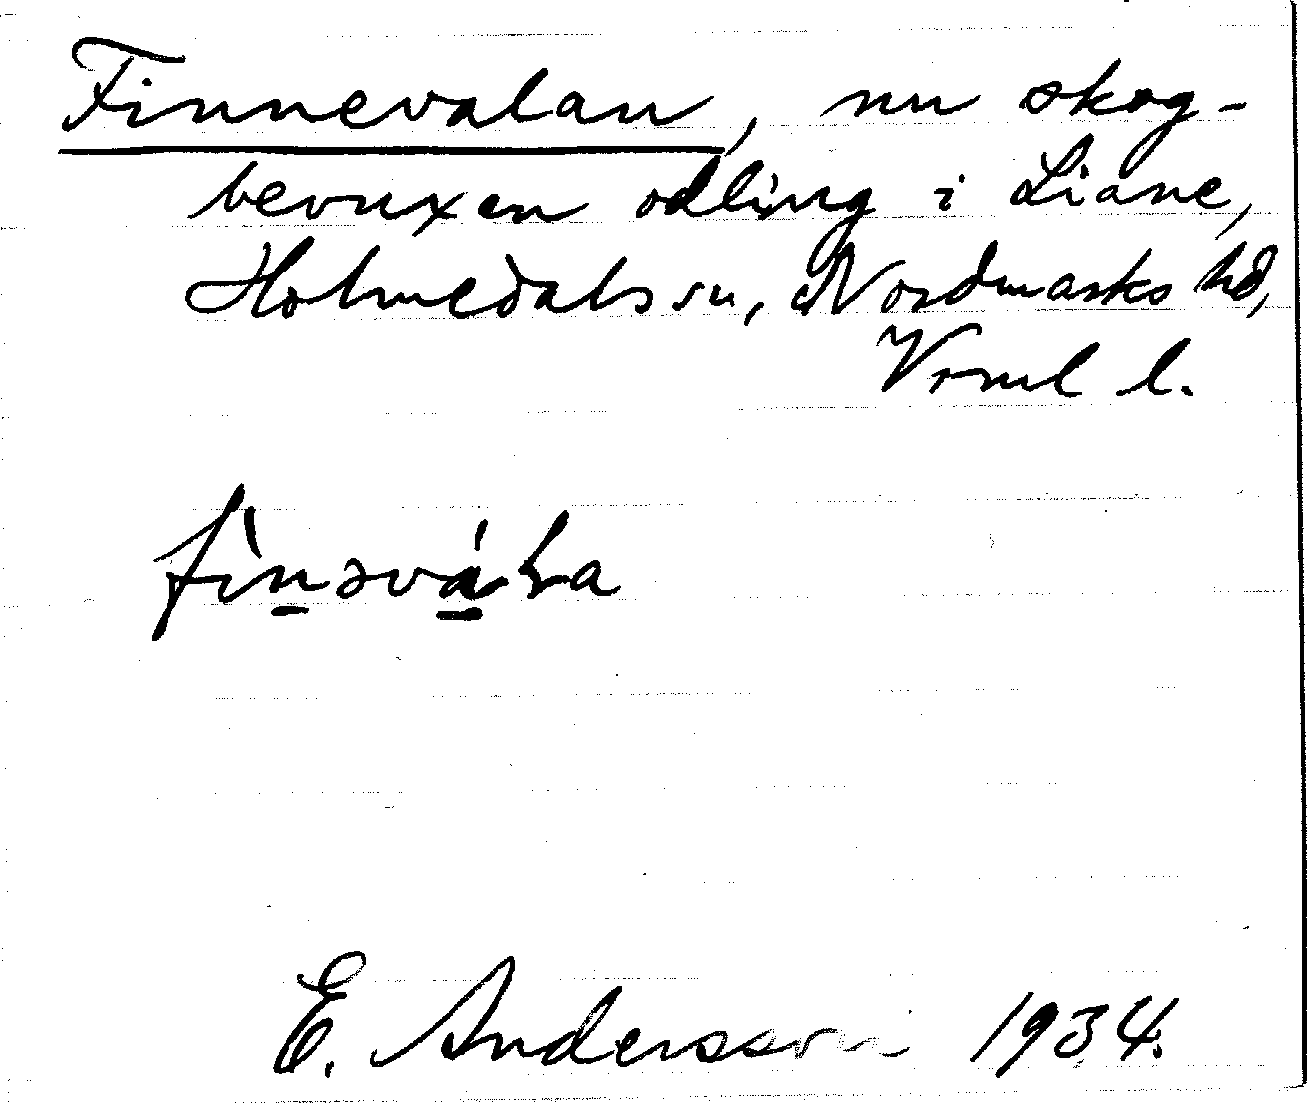 Finnevalan, nu skog-
bevuxen odling i Liane,
Holmedals sn, Nordmarks hd,
Vrml l.
E. Andersson 1934.